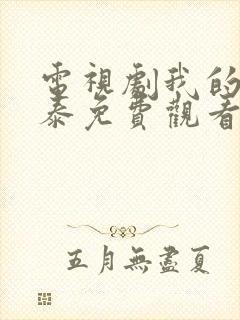 電視劇我的
泰免費觀看
五月無盡夏